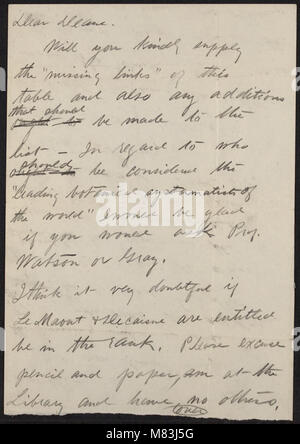 Dear Deane.
Will you kindly supply
the "missing links" of this
table and also any additions
that should
be made to the
list - In regard to who
should
be considered the
"leading botanical systematists of
the world" I would be glad
if you would ask Prof.
Watson or Gray.
I think it very doubtful if
Le Maout & Decaisne are entitled
be in the rank. Please excuse
pencil and paper, am at the
Library and have no others.
(over
alamy
M83J5G